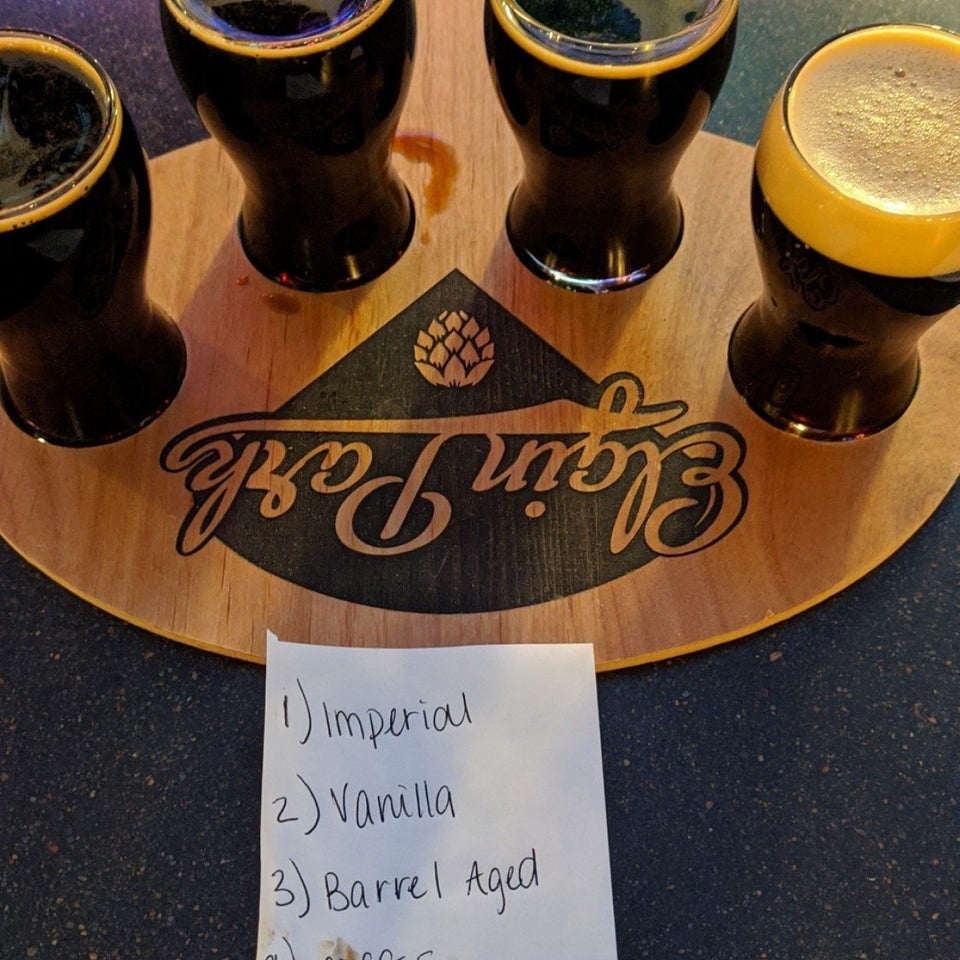 Elgin Park
1) Imperial
2) Vanilla
3) Barrel Aged